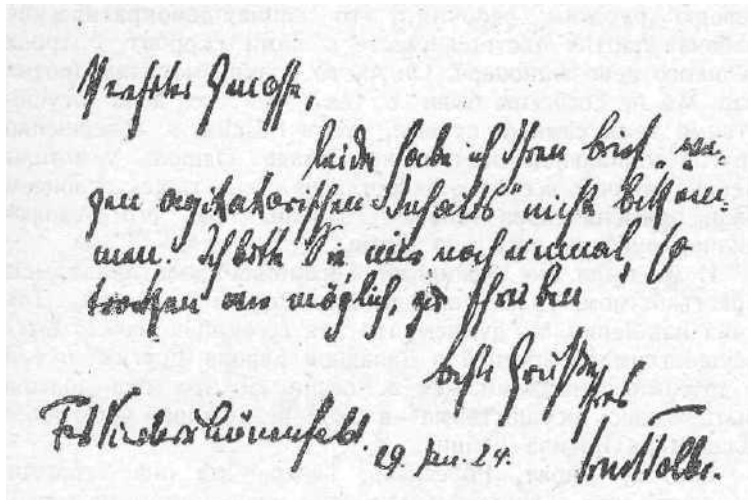 Genosse
leider habe ich Ihren Brief „we-
gen agitatorischen Inhalts“ nicht bekom-
men. Ich bitte Sie mir noch einmal, so
trocken wie möglich, zu schreiben
beste Grüsse
Ihres
Niederschönenfeld
29. 24.
Ernst Toller.